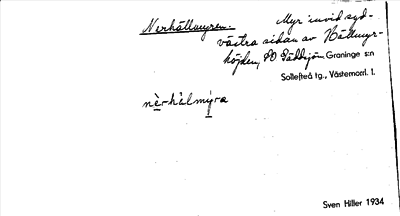 Nerhållmyren.
Myr invid syd-
västra sidan av Bållmyr-
höjden, SO Gäddsjön, Graninge s:n
Sollefteå tg., Västernorrl. l.
nèrhålmýra
Sven Hiller 1934